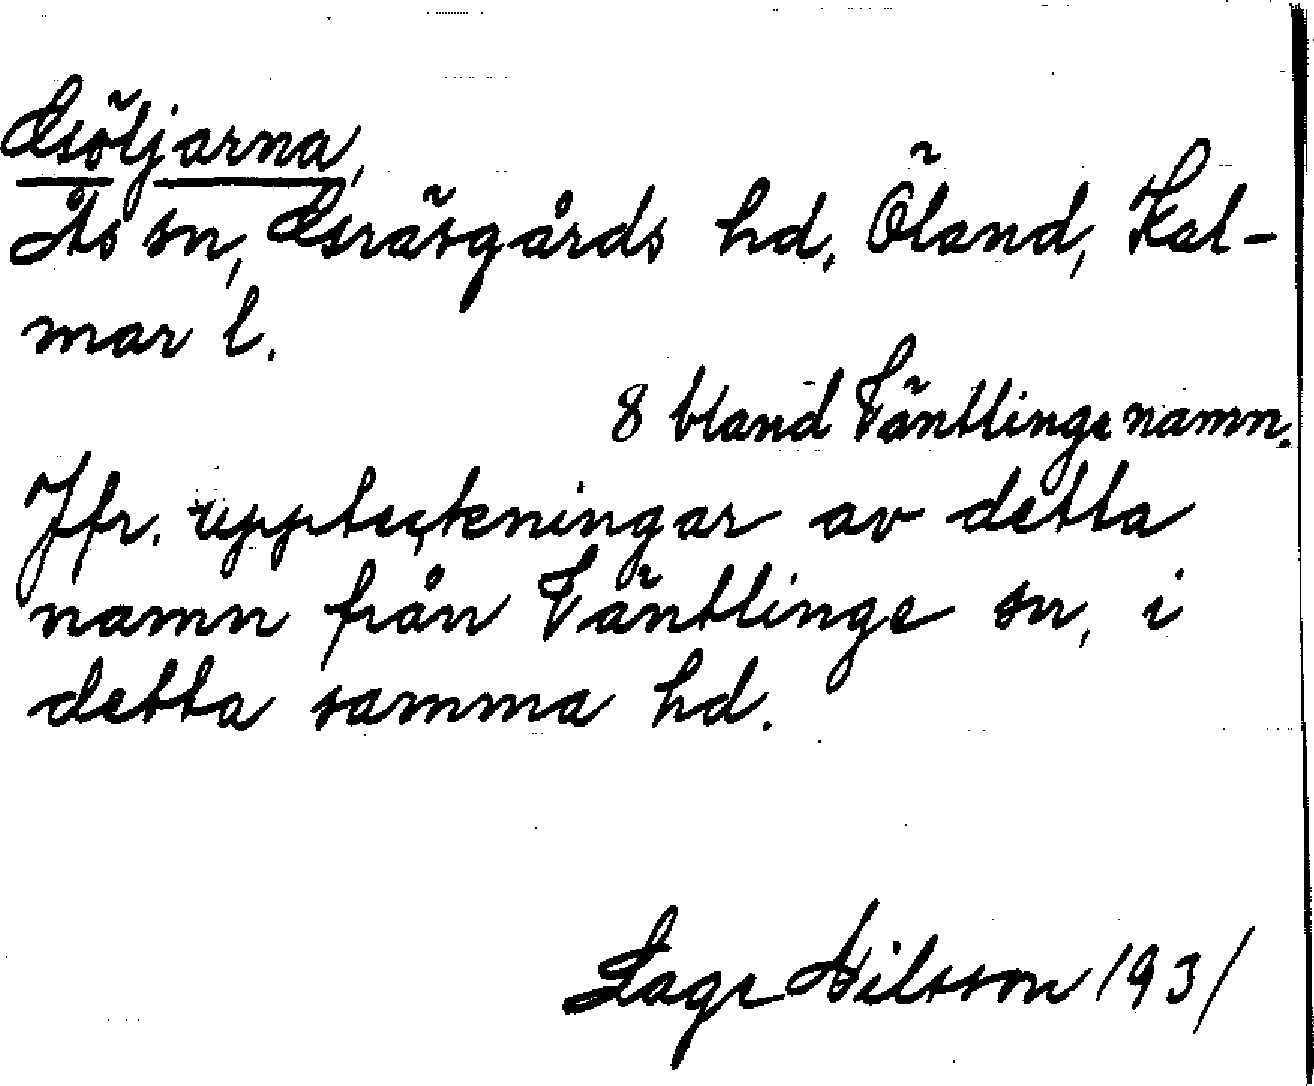 Göljarna,
Ås sn, Gräsgårds hd. Öland, Kal-
mar l.
8 bland Väntlinge namn.
Jfr. uppteckningar av detta
namn från Väntlinge sn, i
detta samma hd.
Lage Nilsson 1931